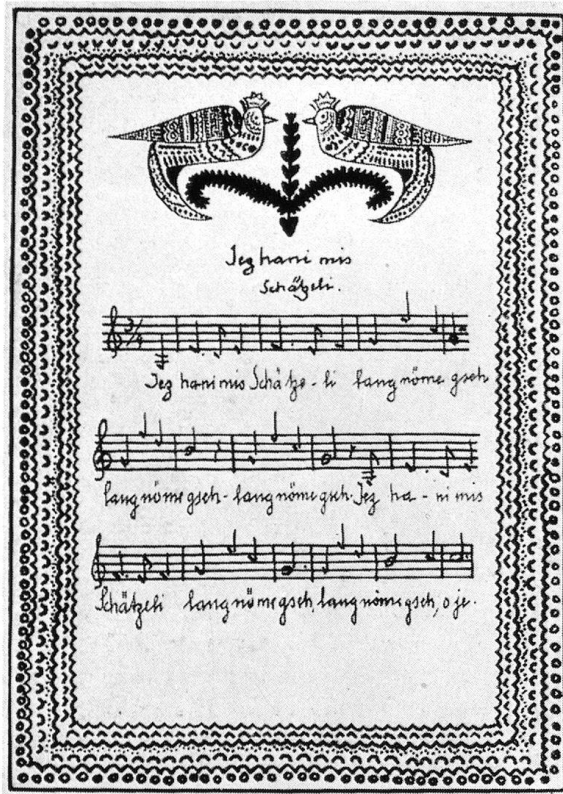 Jez hani mis
Schätzeli.
3/4
Jez hani mis Schätze-li lang nöme gseh
lang nöme gseh - lang nöme gseh. Jez ha - ni mis
Schätzeli lang nöme gseh, lang nöme gseh, o je.